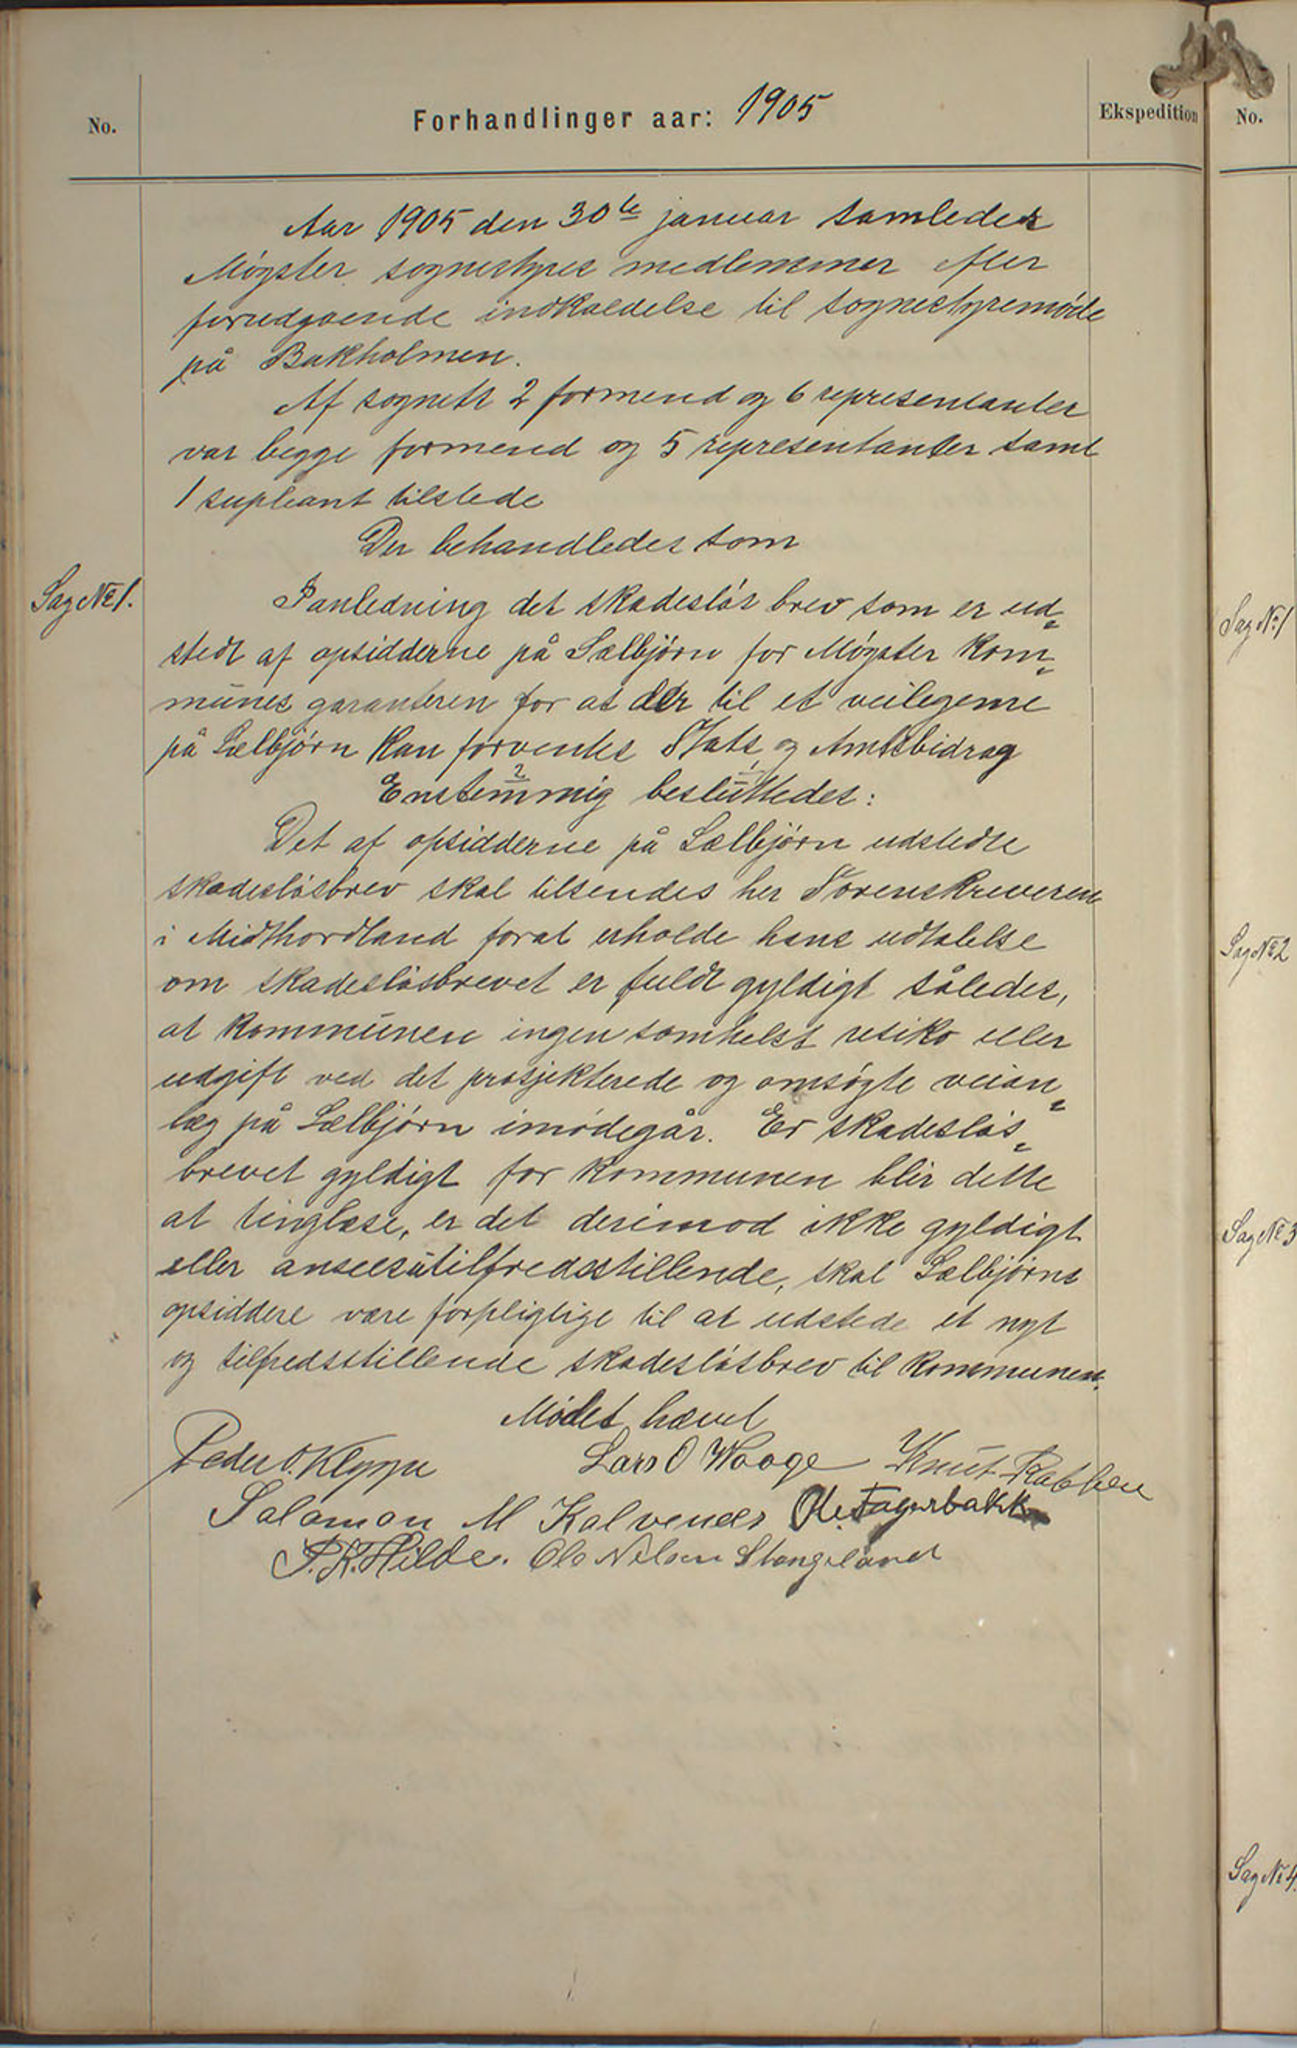 No.
Forhandlinger aar: 1905
Ekspedition
No.
Aar 1905 den 30te januar samledes
Møgster sognestyres medlemmer efter
forudgaaende indkaldelse til sognestyremøde
på Bakholmen.
Af sognets 2 formend og 6 representanter
var begge formend og 5 representanter samt
1 supleant tilstede
Der behandledes som
Sag № 1.
I anledning det skadesløs brev som er ud-
stedt af opsidderne på Sælbjørn for Møgster kom-
munes garanteren for at der til et veilegeme
på Sælbjørn kan forventes Stats og Amtsbidrag
Enstemmig besluttedes:
Det af opsidderne på Sælbjørn udstedte
skadesløsbrev skal tilsendes her Sorenskreveren
i Midthordland forat erholde hans udtalelse
om skadesløsbrevet er fuldt gyldigt således,
at kommunen ingen somhelst resiko eller
udgift ved det prosjekterede og omsøgte veian-
læg på Sælbjørn imødegår. Er skadesløs-
brevet gyldigt for kommunen blir dette
at tinglæse, er det derimod ikke gyldigt
eller ansees utilfredsstillende, skal Sælbjørns
opsiddere være forpligtige til at udstede et nyt
og tilfredsstillende skadesløsbrev til kommunen.
Mødet hævet
Peder O. Kleppe Lars O Waage Knut Rabben
Salamon M Kalvenes Ole Fagerbakk
P.K. Hilde. Ole Nilsen Stangeland
Sag № 1
Sag № 2
Sag № 3
Sag № 4.